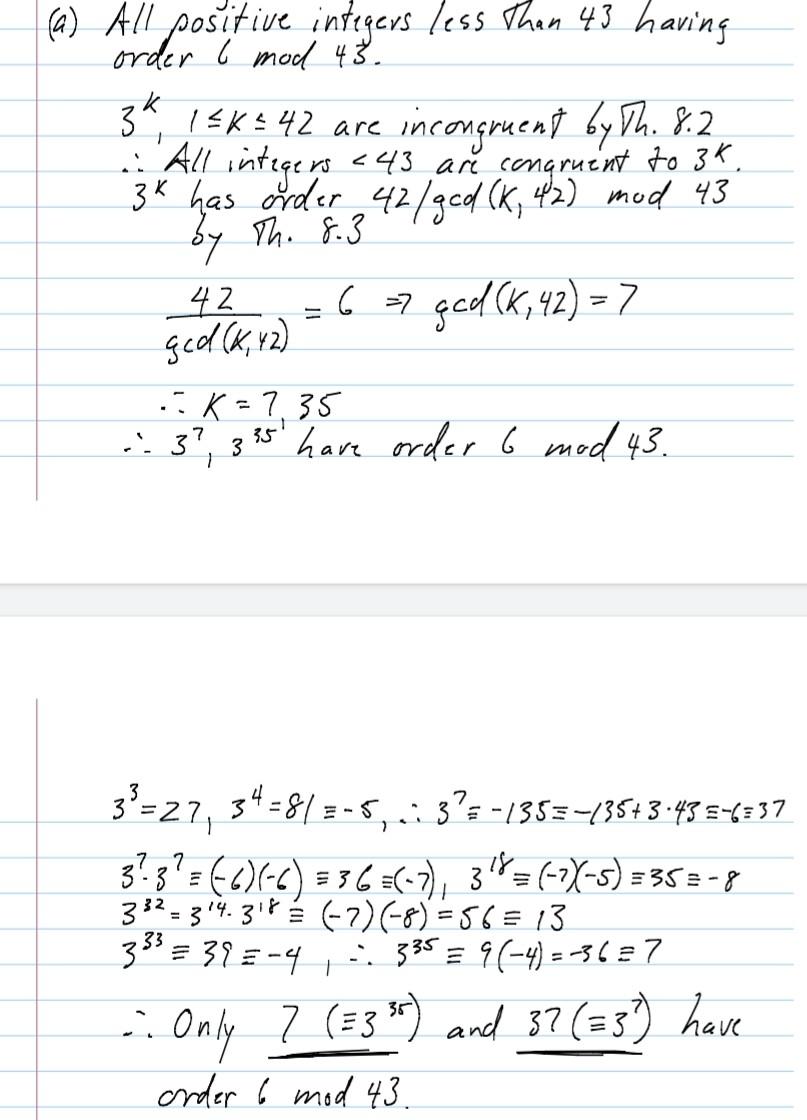 (a) All positive integers less than 43 having
order 6 mod 43.
3^K, 1 ≤ K ≤ 42 are incongruent by Th. 8.2
∴ All integers < 43 are congruent to 3^K.
3^K has order 42/gcd(K, 42) mod 43
by Th. 8.3
42/gcd(K, 42) = 6 ⇒ gcd(K, 42) = 7
∴ K = 7, 35
∴ 3^7, 3^35 have order 6 mod 43.
3^3 = 27, 3^4 = 81 ≡ -5, ∴ 3^7 ≡ -135 ≡ -135 + 3·43 ≡ -6 ≡ 37
3^7·3^7 ≡ (-6)(-6) ≡ 36 ≡ (-7), 3^18 ≡ (-7)(-5) ≡ 35 ≡ -8
3^32 = 3^14·3^18 ≡ (-7)(-8) = 56 ≡ 13
3^33 ≡ 39 ≡ -4, ∴ 3^35 ≡ 9(-4) = -36 ≡ 7
∴ Only 7 (≡3^35) and 37 (≡3^7) have
order 6 mod 43.